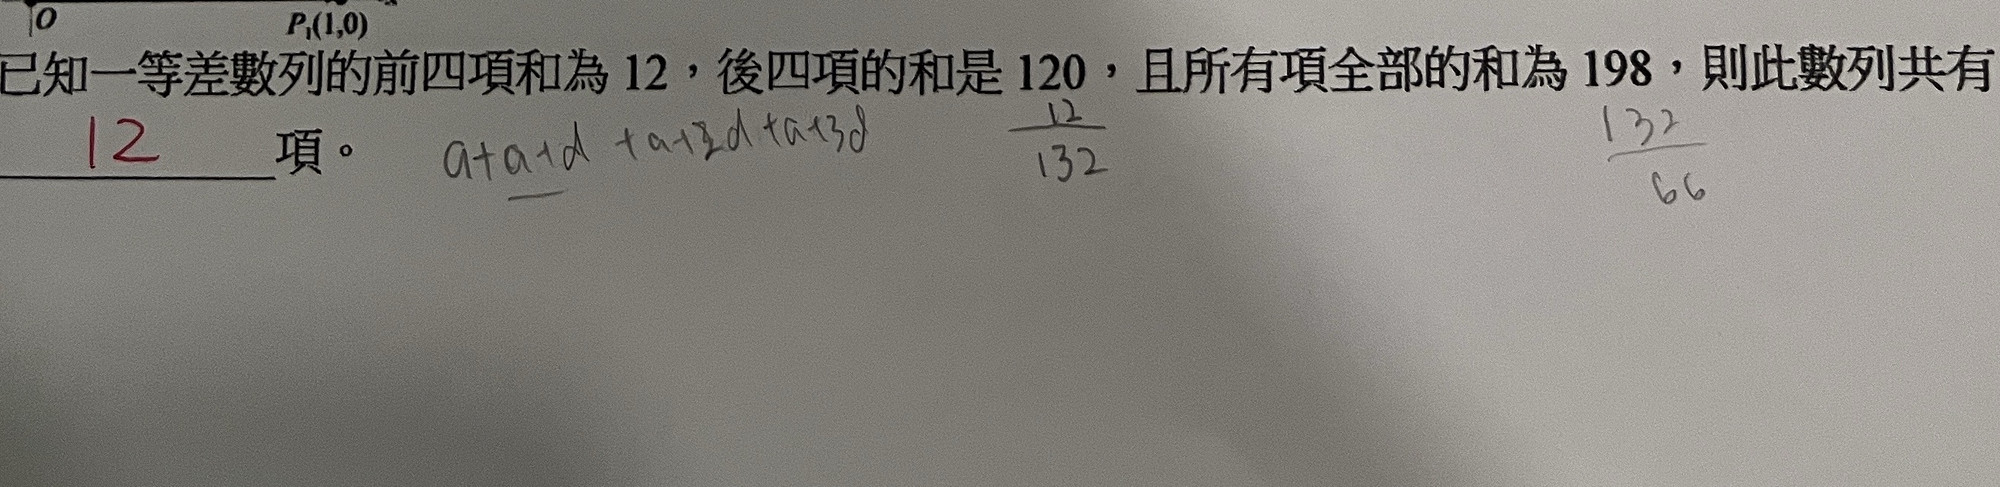 O P₁(1,0)
已知一等差數列的前四項和為 12，後四項的和是 120，且所有項全部的和為 198，則此數列共有
12 項。 a+a+d +a+2d+a+3d 12 132
132 66